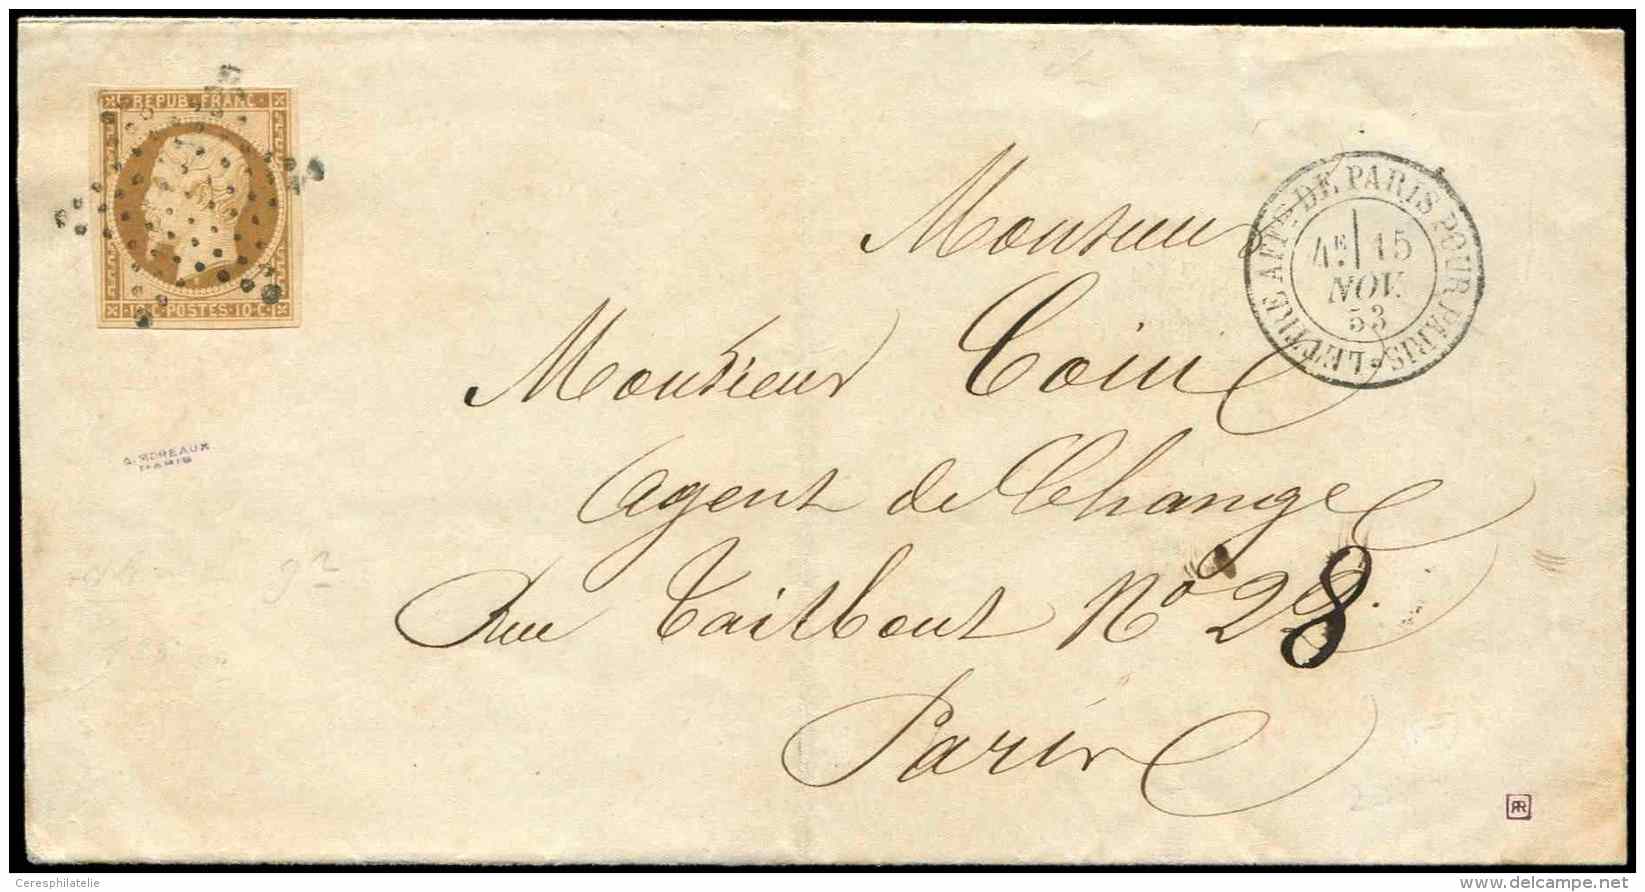 REPUB. FRANC.
10·C·POSTES·10·C·
LETTRE AFF.ie DE PARIS POUR PARIS
4E 15
NOV.
53
Monsieur
Monsieur Coin
Agent de Change
Rue Taitbout No 22
8
Paris
A. MOREAUX
PARIS
Ceresphilatelie
delcampe.net